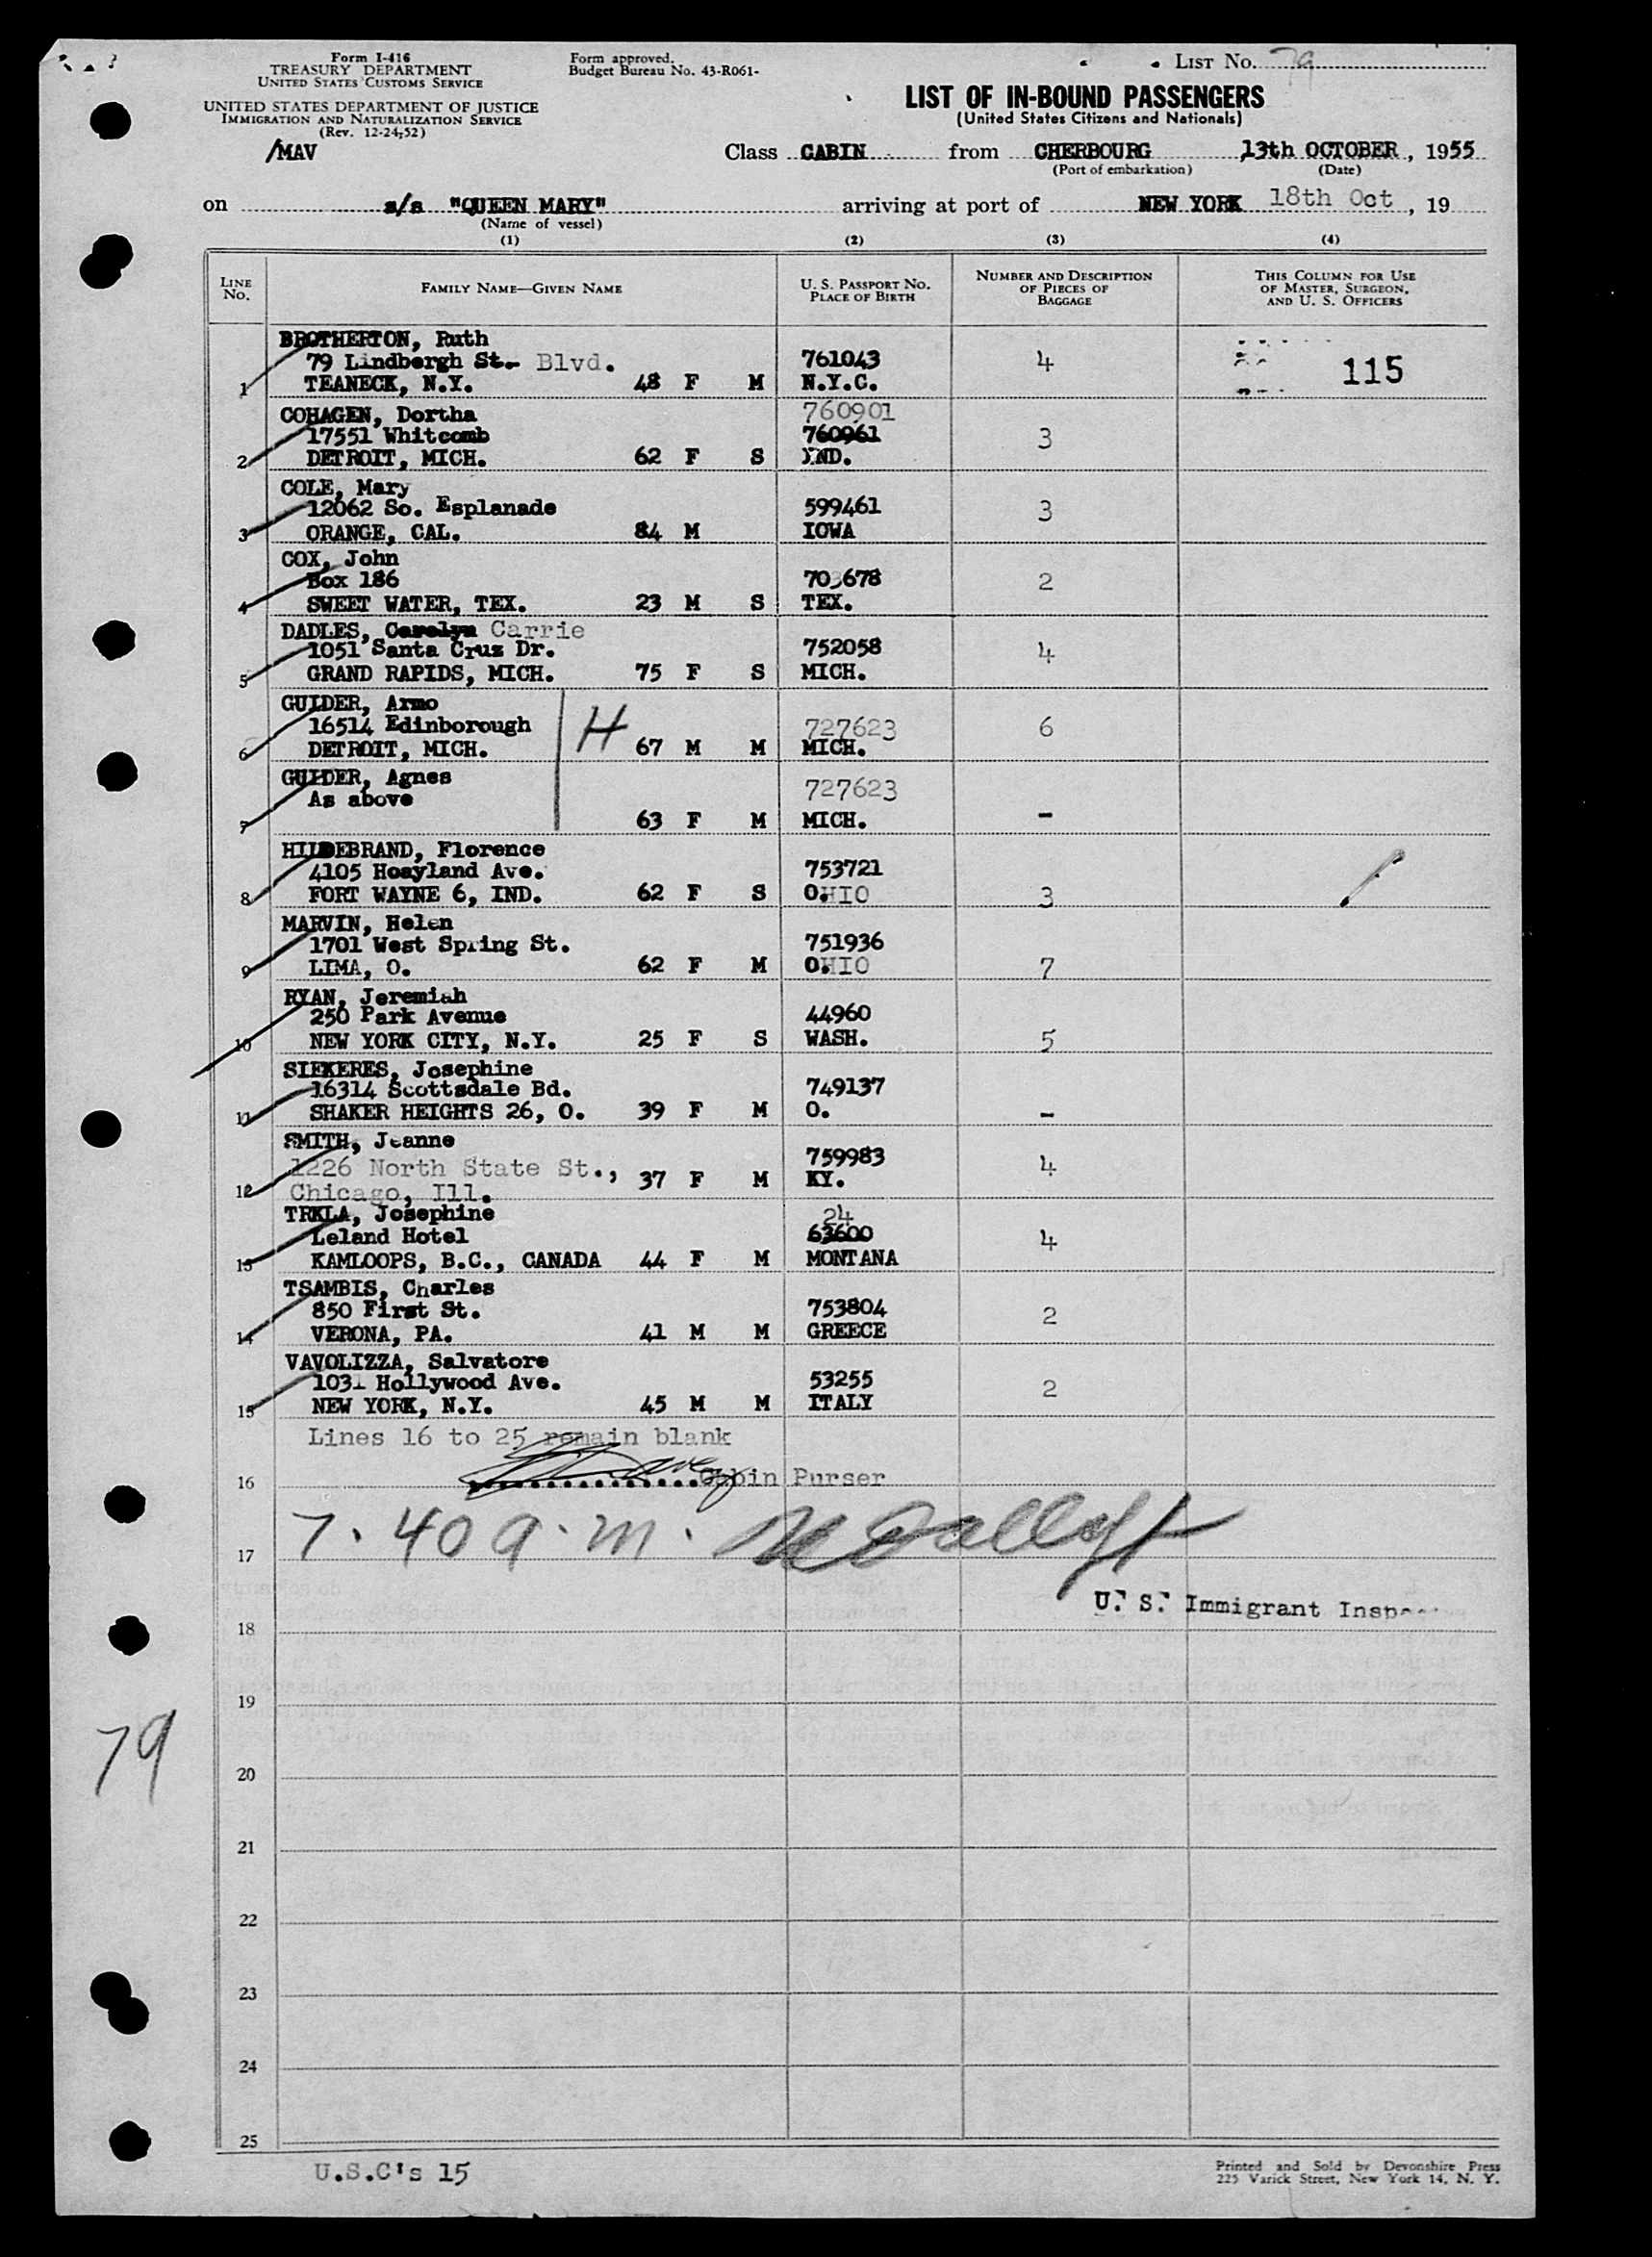 Form I-416
TREASURY DEPARTMENT
UNITED STATES CUSTOMS SERVICE
UNITED STATES DEPARTMENT OF JUSTICE
IMMIGRATION AND NATURALIZATION SERVICE
(Rev. 12-24-52)
/MAV
Form approved.
Budget Bureau No. 43-R061-
LIST NO. 79
LIST OF IN-BOUND PASSENGERS
(United States Citizens and Nationals)
Class CABIN from CHERBOURG 13th OCTOBER, 1955
(Port of embarkation) (Date)
on s/s "QUEEN MARY" arriving at port of NEW YORK 18th Oct, 19
(Name of vessel)
(1) (2) (3) (4)
LINE NO. FAMILY NAME—GIVEN NAME U. S. PASSPORT NO. PLACE OF BIRTH NUMBER AND DESCRIPTION OF PIECES OF BAGGAGE THIS COLUMN FOR USE OF MASTER, SURGEON, AND U. S. OFFICERS
BROTHERTON, Ruth
79 Lindbergh St. Blvd. 761043 4 115
1 TEANECK, N.Y. 48 F M N.Y.C.
COHAGEN, Dortha 760901
17551 Whitcomb 760961 3
2 DETROIT, MICH. 62 F S IND.
COLE, Mary
12062 So. Esplanade 599461 3
3 ORANGE, CAL. 84 M IOWA
COX, John
Box 186 703678 2
4 SWEET WATER, TEX. 23 M S TEX.
DADLES, Carolyn Carrie
1051 Santa Cruz Dr. 752058 4
5 GRAND RAPIDS, MICH. 75 F S MICH.
GUIDER, Arno
16514 Edinborough H 727623 6
6 DETROIT, MICH. 67 M M MICH.
GUIDER, Agnes
As above 727623
7 63 F M MICH. -
HILDEBRAND, Florence
4105 Hoayland Ave. 753721
8 FORT WAYNE 6, IND. 62 F S OHIO 3
MARVIN, Helen
1701 West Spring St. 751936
9 LIMA, O. 62 F M OHIO 7
RYAN, Jeremiah
250 Park Avenue 44960
10 NEW YORK CITY, N.Y. 25 F S WASH. 5
SIEKERES, Josephine
16314 Scottsdale Bd. 749137
11 SHAKER HEIGHTS 26, O. 39 F M O. -
SMITH, Jeanne
1226 North State St., 759983 4
12 Chicago, Ill. 37 F M KY.
TRKLA, Josephine 24
Leland Hotel 63600 4
13 KAMLOOPS, B.C., CANADA 44 F M MONTANA
TSAMBIS, Charles
850 First St. 753804 2
14 VERONA, PA. 41 M M GREECE
VAVOLIZZA, Salvatore
1031 Hollywood Ave. 53255 2
15 NEW YORK, N.Y. 45 M M ITALY
Lines 16 to 25 remain blank
16 Cabin Purser
17 7.40 a.m.
U. S. Immigrant
18
19
79
20
21
22
23
24
25
U.S.C's 15
Printed and Sold by Devonshire Press
225 Varick Street, New York 14, N. Y.